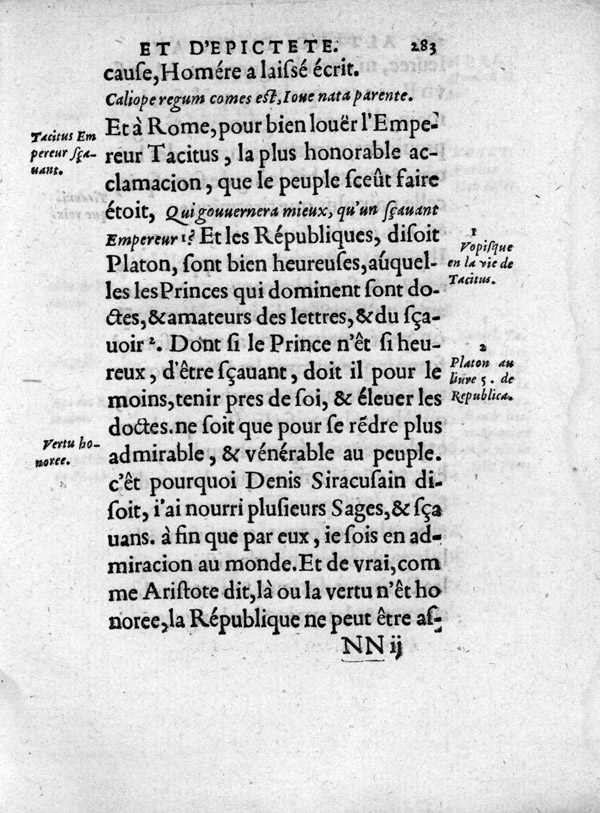 ET D'EPICTETE. 283
cauſe, Homére a laiſſé écrit.
Caliope regum comes eſt, Ioue nata parente.
Et à Rome, pour bien louër l'Empe-
reur Tacitus, la plus honorable ac-
clamacion, que le peuple ſceût faire
étoit, Qui gouuernera mieux, qu'un ſçauant
Empereur 1? Et les Républiques, diſoit
Platon, ſont bien heureuſes, aúquel-
les les Princes qui dominent ſont do-
ctes, & amateurs des lettres, & du ſça-
uoir 2. Dont ſi le Prince n'êt ſi heu-
reux, d'être ſçauant, doit il pour le
moins, tenir pres de ſoi, & éleuer les
doctes. ne ſoit que pour ſe rẽdre plus
admirable, & vénérable au peuple.
c'êt pourquoi Denis Siracuſain di-
ſoit, i'ai nourri pluſieurs Sages, & ſça
uans. à fin que par eux, ie ſois en ad-
miracion au monde. Et de vrai, com
me Ariſtote dit, là ou la vertu n'êt ho
noree, la République ne peut être aſ-
NN ij
Tacitus Em
pereur ſça-
uant.
Vertu ho-
noree.
1
Vopiſque
en la vie de
Tacitus.
2
Platon au
liure 5. de
Republica.